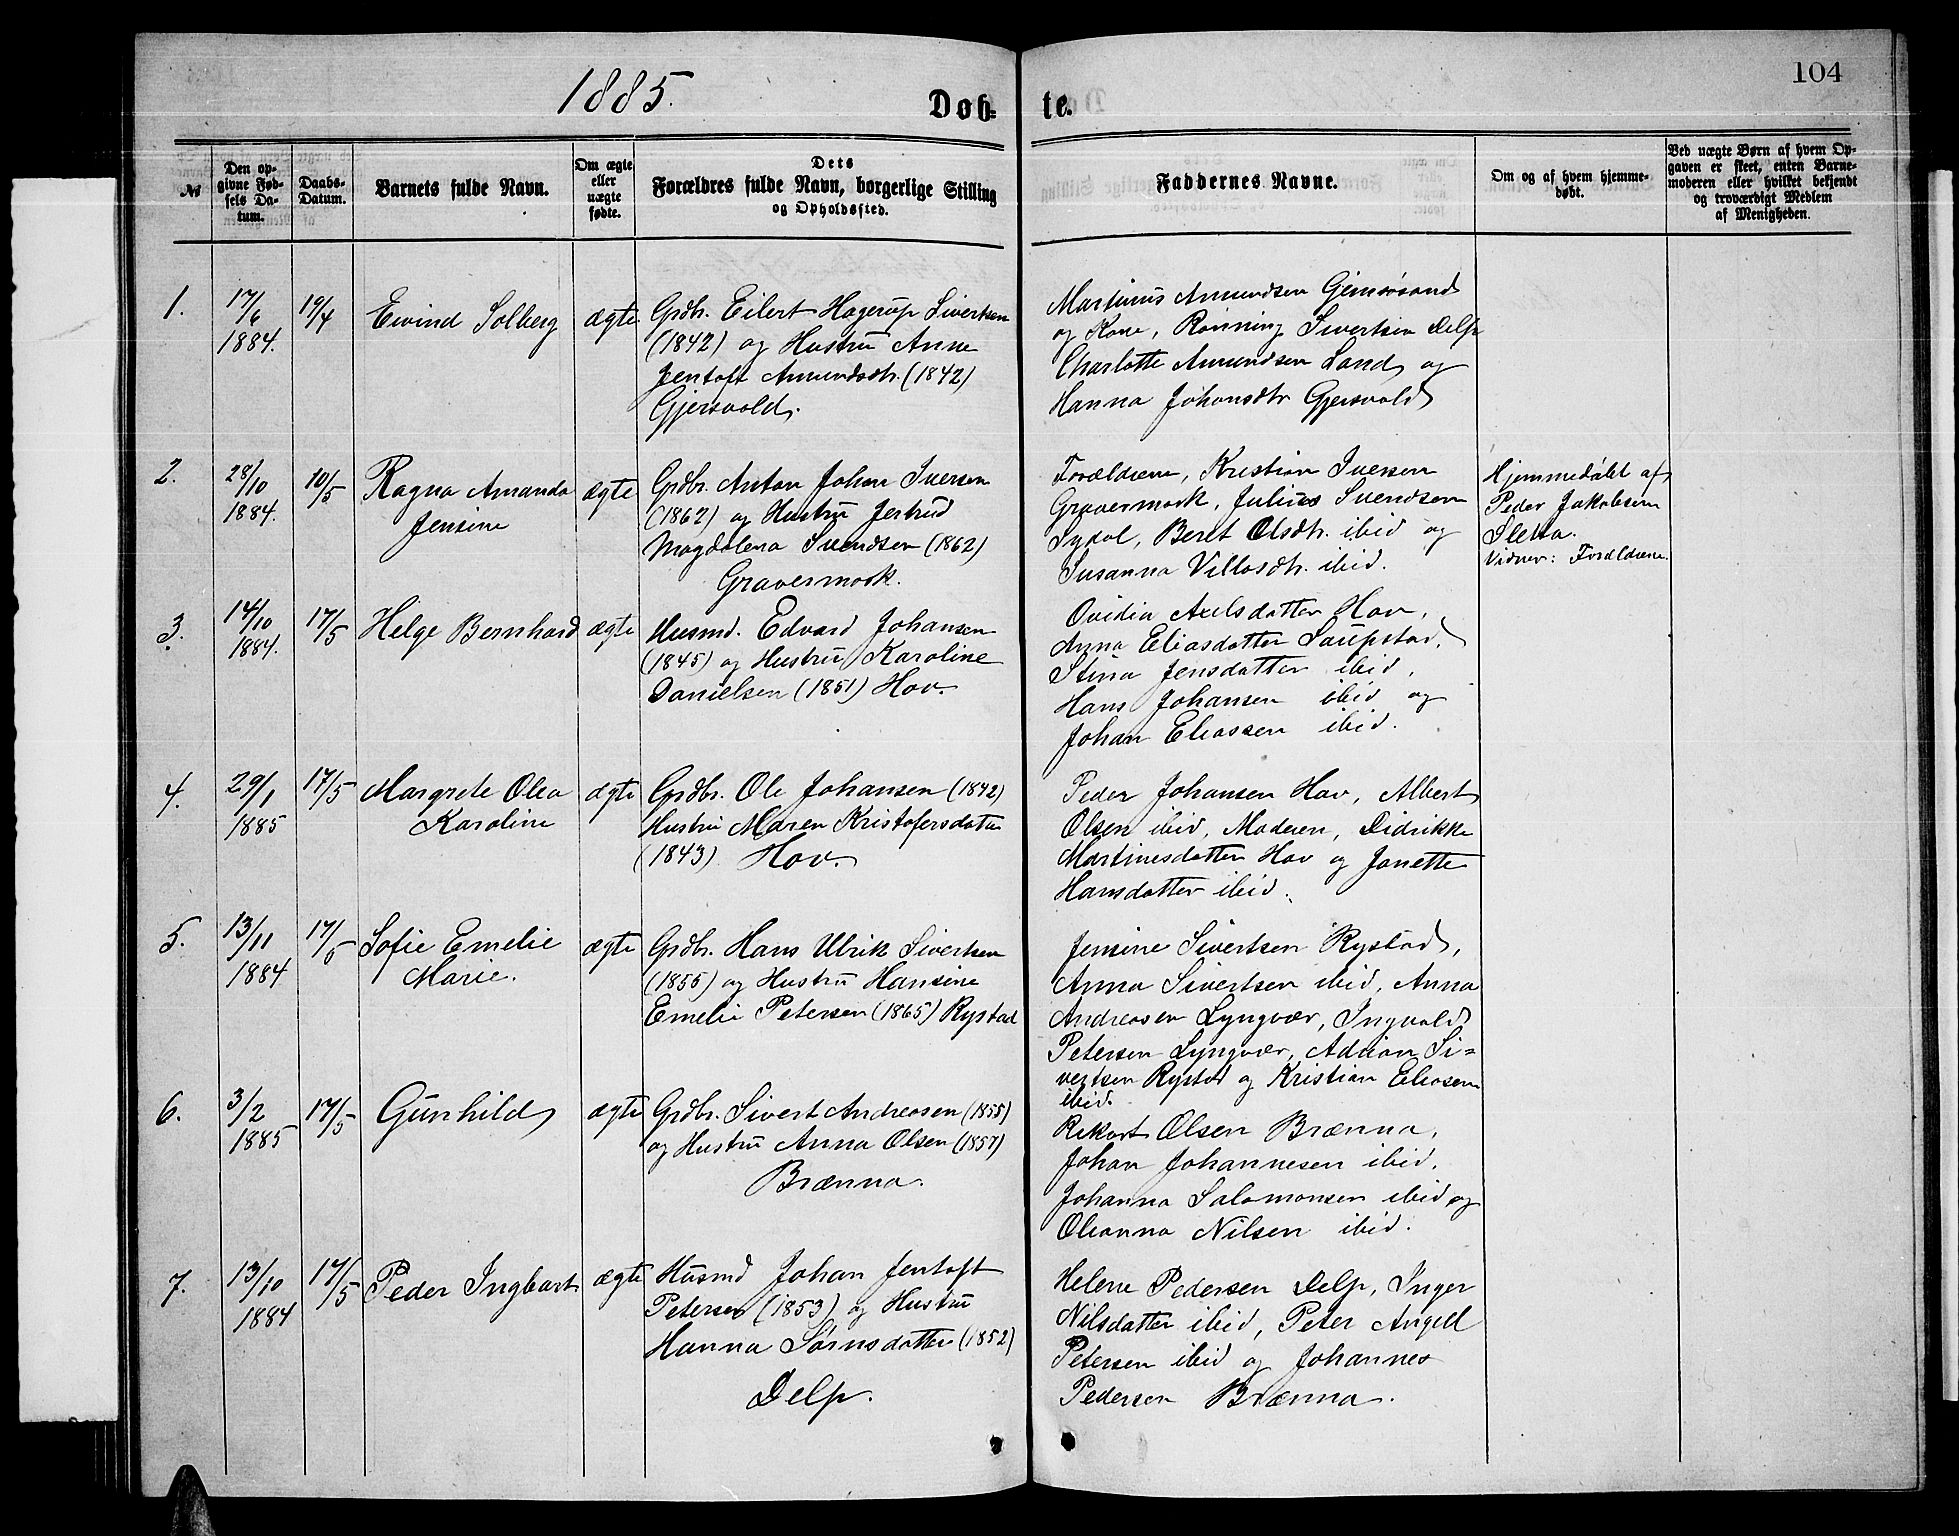 1885.
Døb-
te.
104
№
Den op-
givne Fød-
sels Da-
tum.
Daabs-
Datum.
Barnets fulde Navn.
Om ægte
eller
uægte
fødte.
Dets
Forældres fulde Navn, borgerlige Stilling
og Opholdssted.
Faddernes Navne.
Om og af hvem hjemme-
døbt.
Ved uægte Børn af hvem Op-
gaven er skeet, enten Barne-
moderen eller hvilket bekjendt
og troværdigt Medlem
af Menigheden.
1.
17/6
1884.
19/4
Eivind Solberg
ægte
Grdbr. Eilert Hagerup Sivertsen
(1842) og Hustru Anne
Jentoft Amundsdtr. (1842)
Gjersvold.
Martinus Amundsen Gimsøsand
og Kone, Rønning Sivertsen Delp
Charlotte Amundsen Sand og
Hanna Johansdtr Gjersvold
2.
28/10
1884.
10/5
Ragna Amanda
Jensine
ægte
Grdbr. Anton Johan Iversen
(1862) og Hustru Jertrud
Magdalena Svendsen (1862)
Gravermark.
Forældrene, Kristian Iversen
Gravermark, Julius Svendsen
Sydal, Beret Olsdtr. ibid og
Susanna Villasdtr. ibid.
Hjemmedøbt af
Peder Jakobsen
Sletta.
Vidner: Forældrene.
3.
14/10
1884.
17/5
Helge Bernhard
ægte
Husmd. Edvard Johansen
(1845) og Hustru Karoline
Danielsen (1851) Hov.
Ovidia Axelsdatter Hov,
Anna Eliasdatter Saupstad,
Stina Jensdatter ibid,
Hans Johansen ibid og
Johan Eliassen ibid.
4.
29/1
1885
17/5
Margrete Olea
Karoline
ægte
Grdbr. Ole Johansen (1842)
Hustru Maren Kristofersdatter
(1843) Hov.
Peder Johansen Hov, Albert
Olsen ibid, Moderen, Didrikke
Martinesdatter Hov og Janette
Hansdatter ibid.
5.
13/11
1884
17/5
Sofie Emelie
Marie.
ægte
Grdbr. Hans Ulrik Sivertsen
(1855) og Hustru Hansine
Emelie Petersen (1865) Rystad
Jensine Sivertsen Rystad,
Anna Sivertsen ibid, Anna
Andreasen Lyngvær, Ingvald
Petersen Lyngvær, Adrian Si=
vertsen Rystad og Kristian Eliasen
ibid.
6.
3/2
1885
17/5
Gunhild
ægte
Grdbr. Sivert Andreasen (1855)
og Hustru Anna Olsen (1857)
Brænna.
Rikart Olsen Brænna,
Johan Johannesen ibid,
Johanna Salamonsen ibid og
Oleanna Nilsen ibid.
7.
13/10
1884
17/5
Peder Ingbart
ægte
Husmd Johan Jentoft
Petersen (1853) og Hustru
Hanna Sørnsdatter (1852)
Delp.
Helene Pedersen Delp, Inger
Nilsdatter ibid, Peter Angell
Petersen ibid og Johannes
Pedersen Brænna.